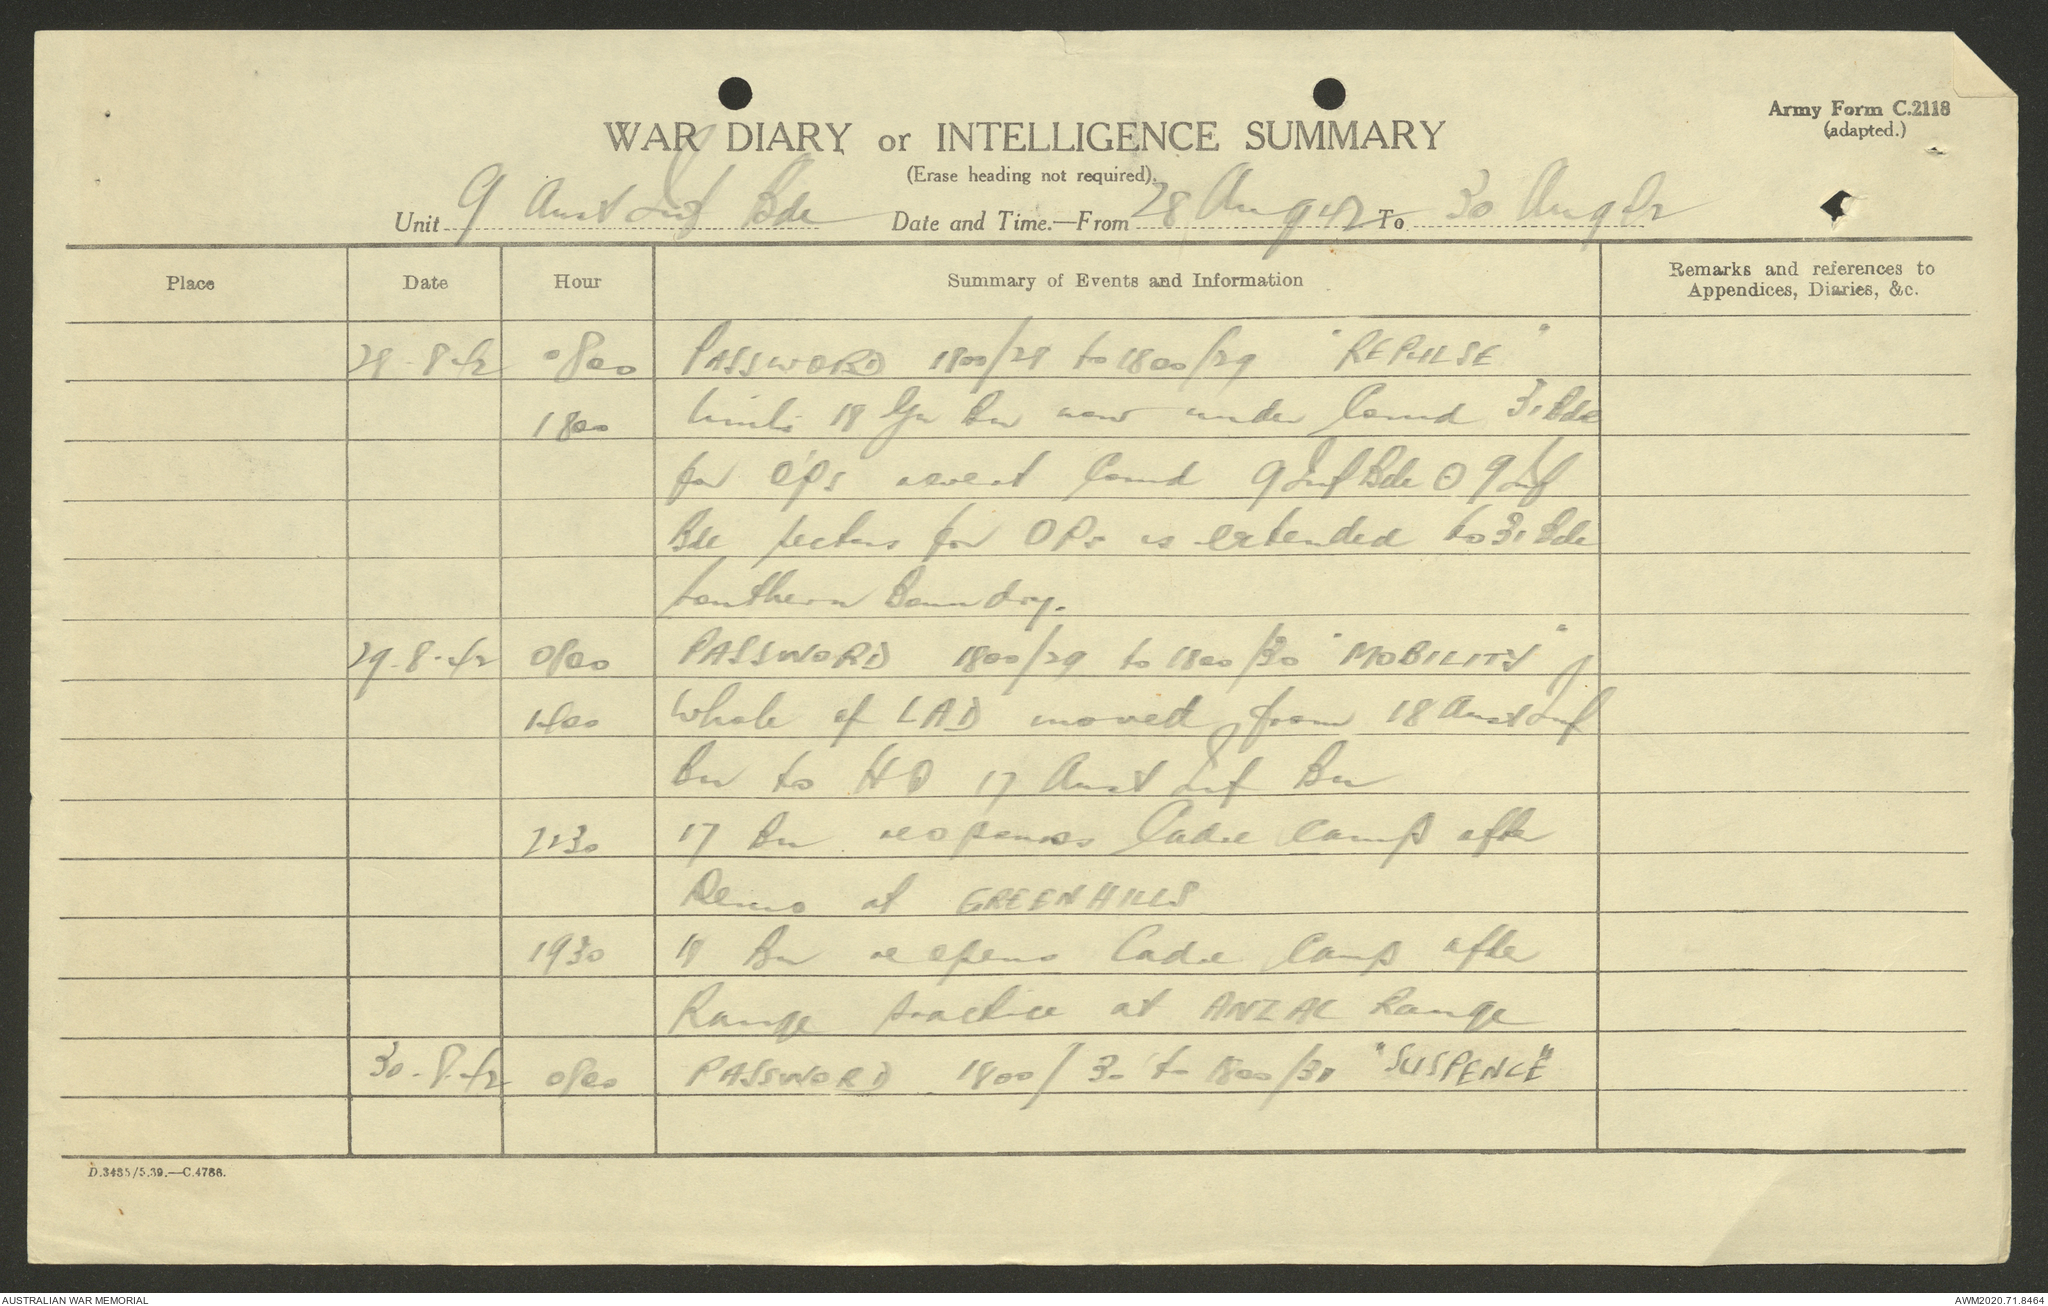 Army Form C.2118
(adapted.)
WAR DIARY or INTELLIGENCE SUMMARY
(Erase heading not required).
Unit 9 Aust Inf Bde Date and Time.—From 28 Aug 42 To 30 Aug 42
Place Date Hour Summary of Events and Information Remarks and references to
Appendices, Diaries, &c.
28-8-42 0800 PASSWORD 1800/28 to 1800/29 "REPULSE"
1800 Units 18 Bn now under Comd 31 Bde
for OPs revert Comd 9 Inf Bde ⊙ 9 Inf
Bde sectors for OPs is extended to 31 Bde
Southern Boundry.
29-8-42 0800 PASSWORD 1800/29 to 1800/30 "MOBILITY"
1400 Whole of LAD moved from 18 Aust Inf
Bn to HQ 17 Aust Inf Bn
2130 17 Bn reopens Cadre Camp after
Demo at GREENHILLS
1930 18 Bn reopens Cadre Camp after
Range practice at ANZAC Range
30-8-42 0800 PASSWORD 1800/30 to 1800/31 "SUSPENCE"
D.3485/5.39.—C.4788.
AUSTRALIAN WAR MEMORIAL AWM2020.71.8464